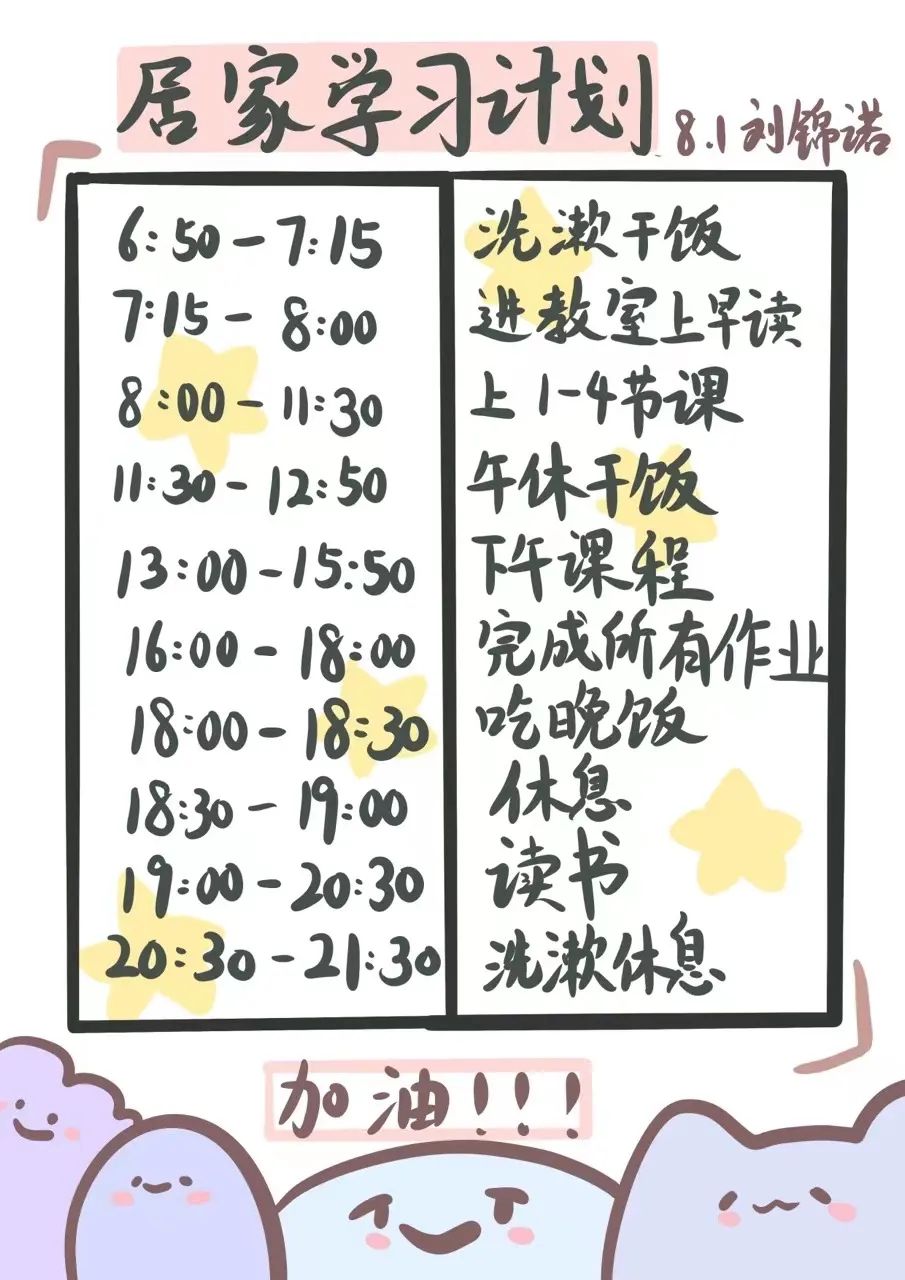 居家学习计划
8.1刘锦诺
6:50-7:15 洗漱干饭
7:15-8:00 进教室上早读
8:00-11:30 上1-4节课
11:30-12:50 午休干饭
13:00-15:50 下午课程
16:00-18:00 完成所有作业
18:00-18:30 吃晚饭
18:30-19:00 休息
19:00-20:30 读书
20:30-21:30 洗漱休息
加油!!!